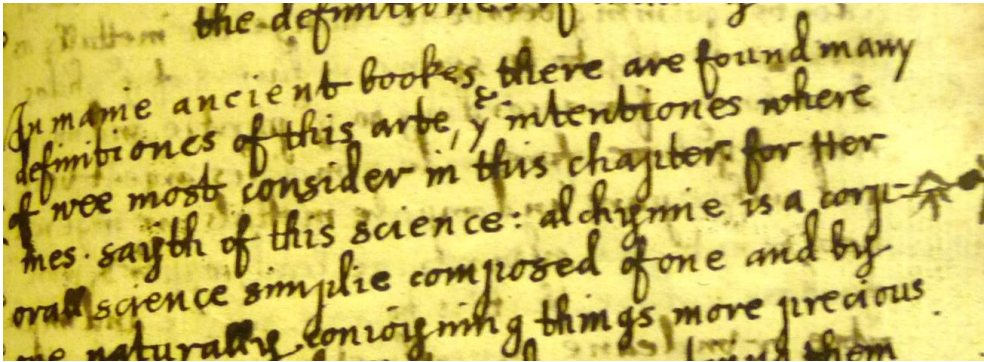 the definitiones of
In manie ancient bookes there are found many
definitiones of this arte, yᵉ intentiones where
of wee most consider in this chapiter. for Her
mes. sayth of this science: alchymie is a corp-
orall science simplie composed of one and by
one naturally conioyning things more precious
them